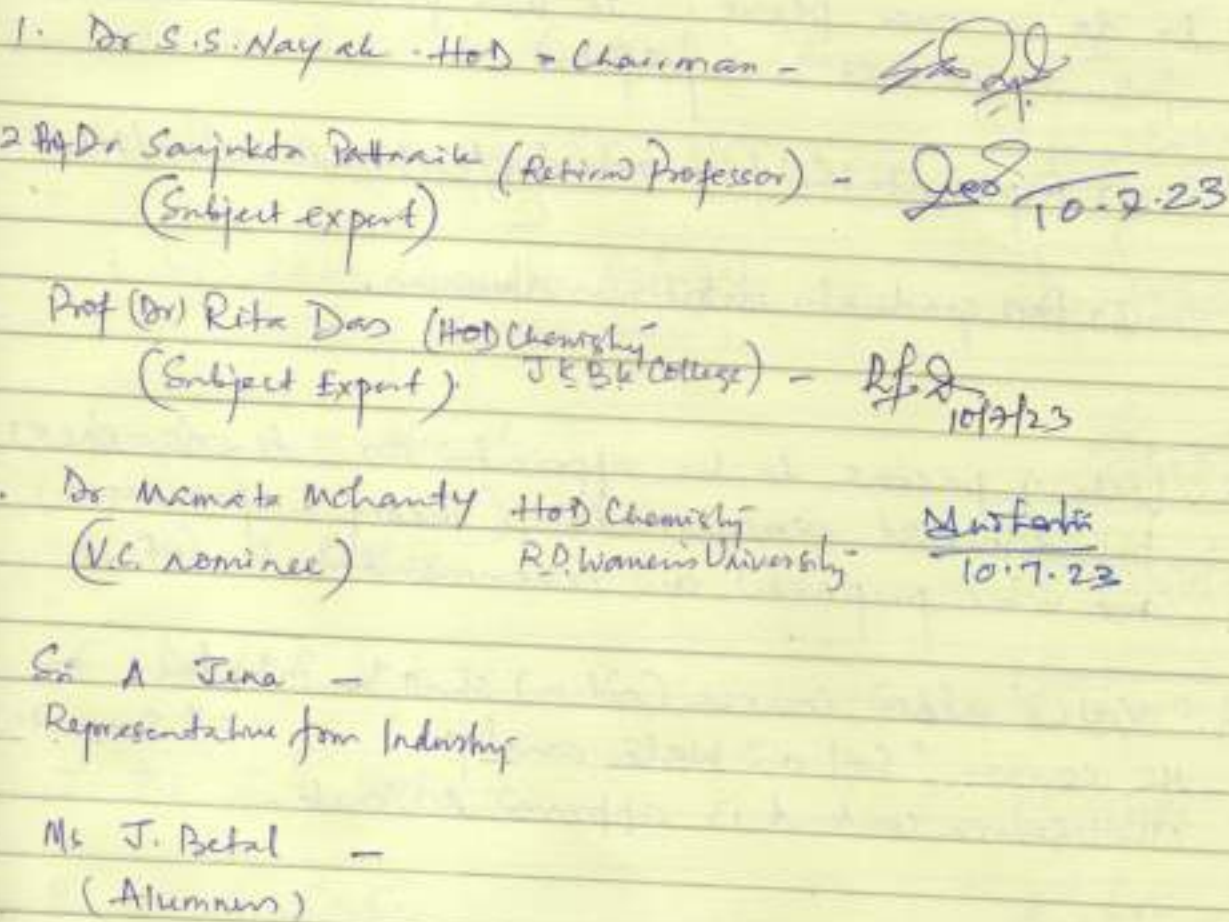 1. Dr S.S. Nayak - HoD - Chairman -
2 Dr Sanjukta Pattnaik (Retired Professor) - 10.7.23
(Subject expert)
Prof (Dr) Rita Das (HOD Chemistry
(Subject Expert). J K B K College) - 10/7/23
Dr Mamata Mohanty HoD Chemistry
(V.C. nominee) R.D. Women's University 10.7.23
Sri A Jena -
Representative from Industry
Ms J. Betal -
(Alumnus)